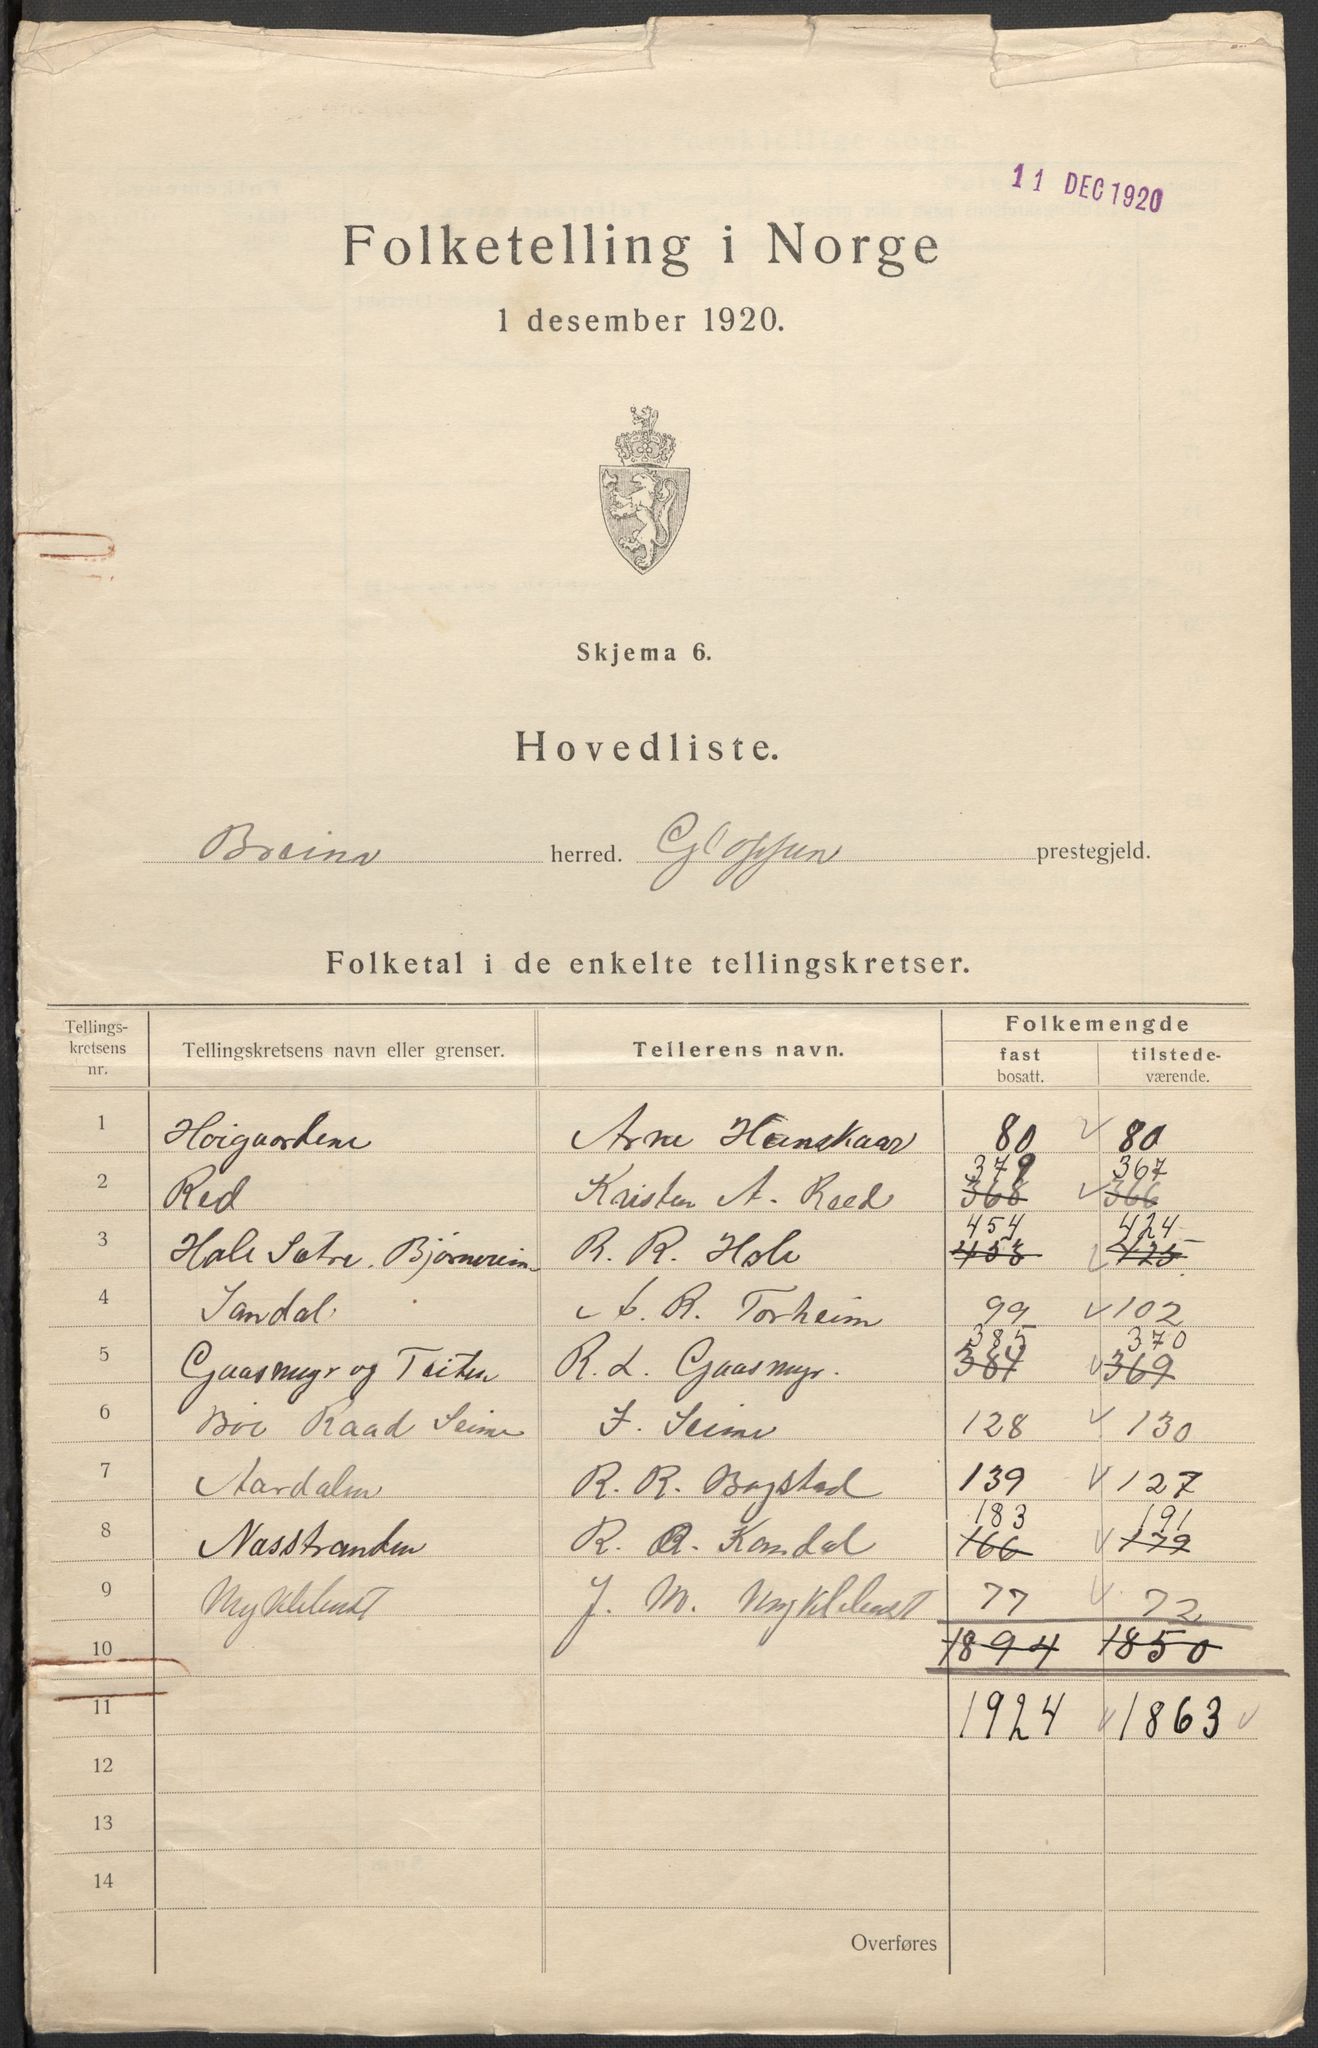 11 DEC 1920
Folketelling i Norge
1 desember 1920.
Skjema 6.
Hovedliste.
Breim herred. Gloppen prestegjeld.
Folketal i de enkelte tellingskretser.
Tellings-kretsens nr. Tellingskretsens navn eller grenser. Tellerens navn. Folkemengde fast bosatt. tilstede-værende.
1 Høigaardene Arne Henskaar 80 80
379 367
2 Red Kristen A. Reed 368 366
454 424
3 Hole Sætre, Bjørnereim R. R. Hole 453 425
4 Sandal A. R. Torheim 99 102
385 370
5 Gaasmyr og Teiten R. L. Gaasmyr. 384 369
6 Böe Raad Seime J. Seime 128 130
7 Aardalen R. R. Bogstad 139 127
183 191
8 Nosstranden R. R. Komdal 166 179
9 Myklebust J. M. Myklebust 77 72
10 1894 1850
11 1924 1863
12
13
14
Overføres